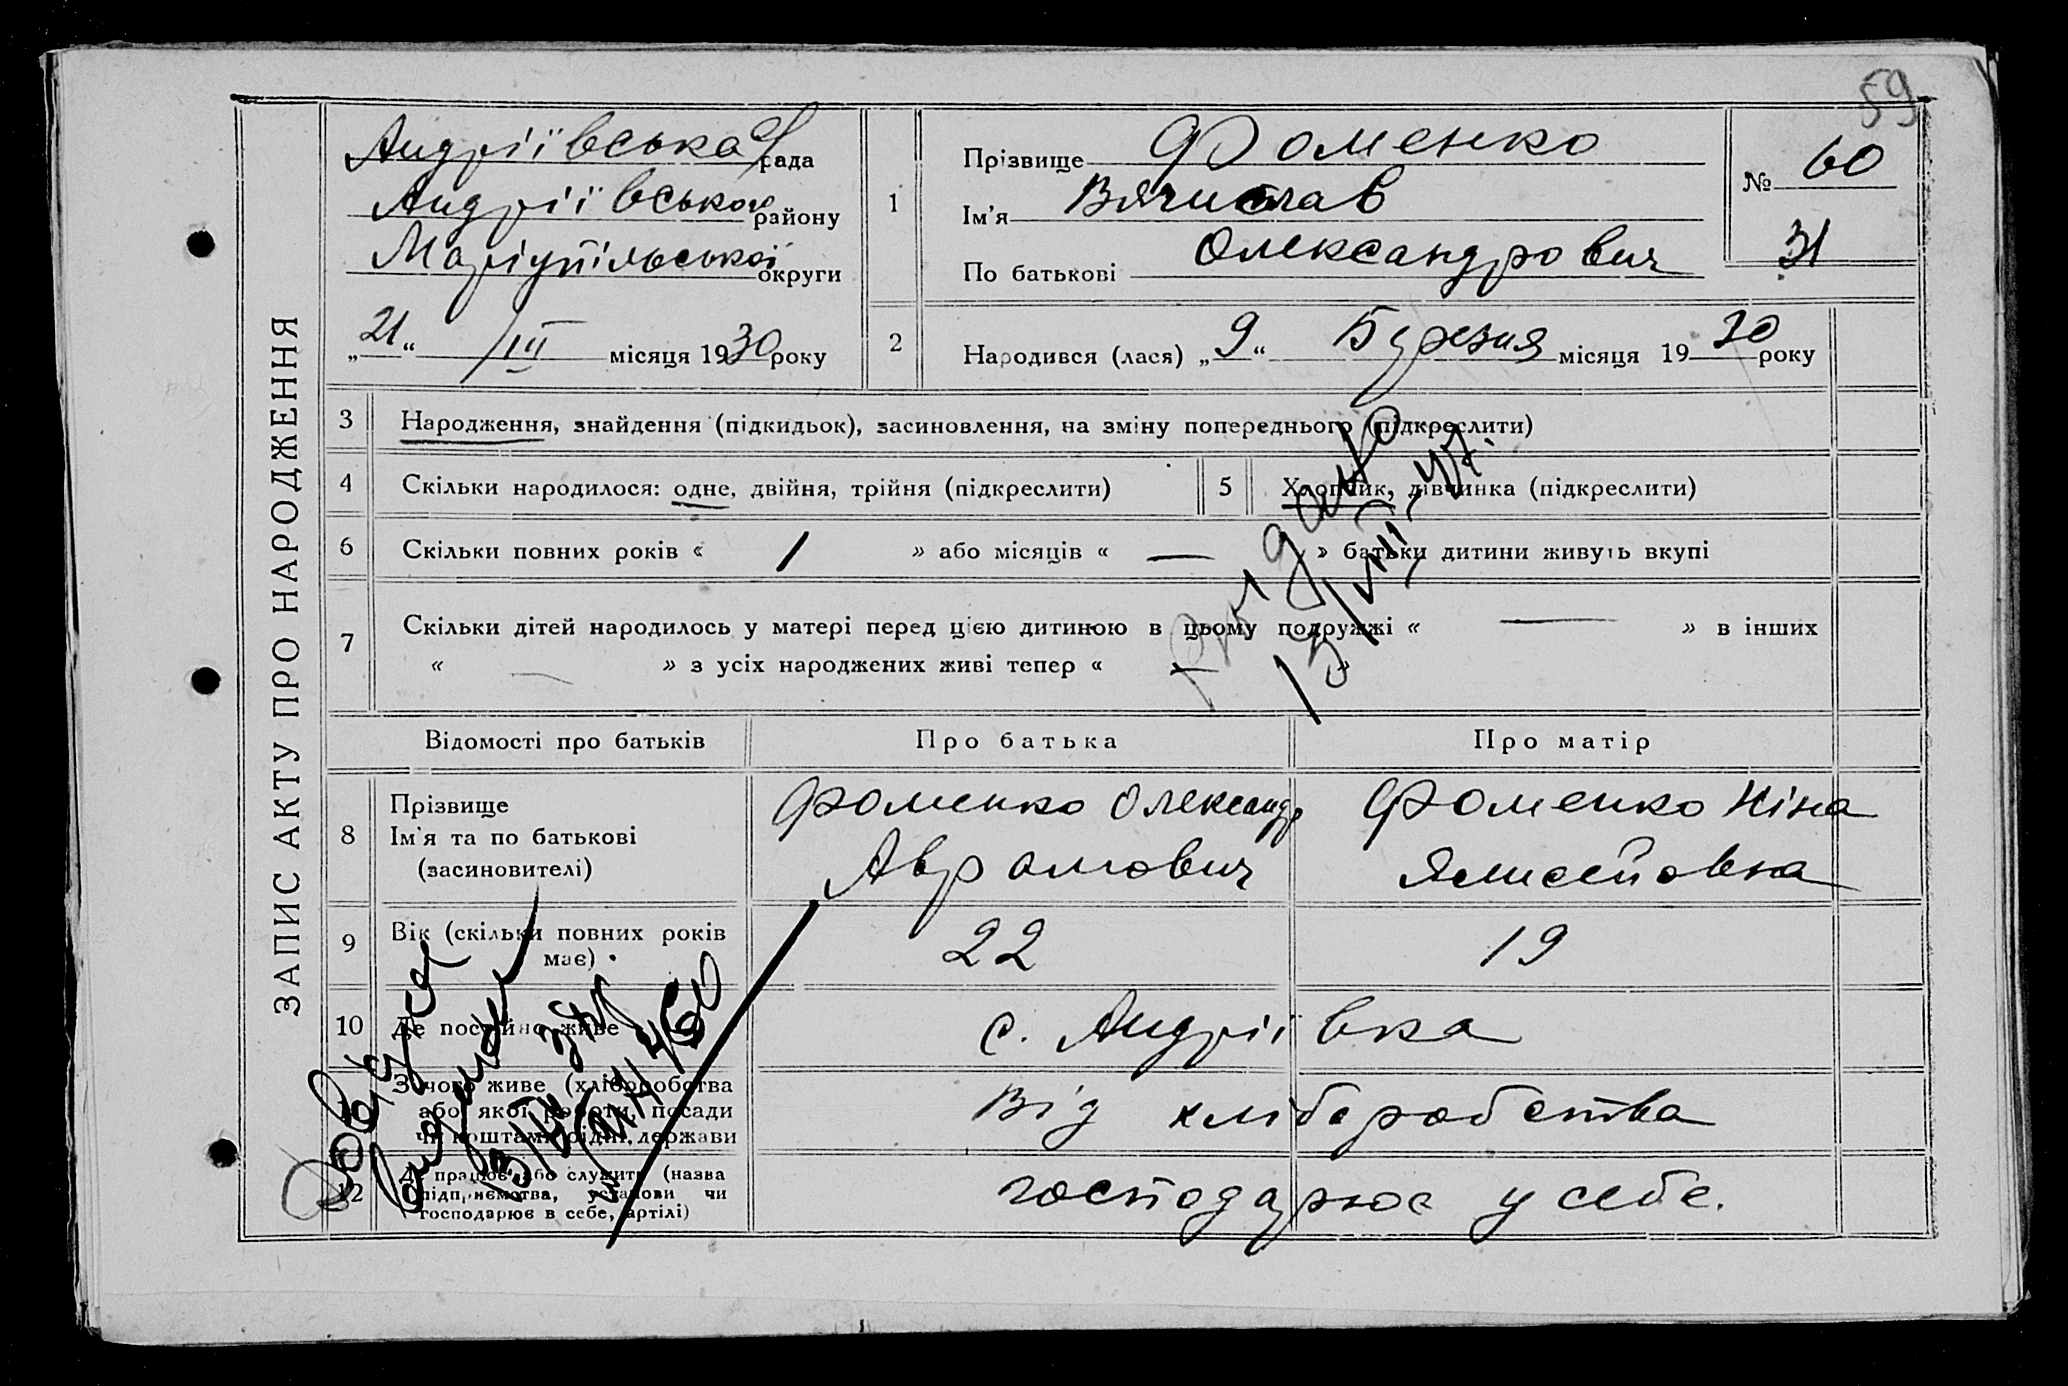 59
ЗАПИС АКТУ ПРО НАРОДЖЕННЯ
Андріївська рада
Андріївсько району
Маріупільської округи
„21“ III місяця 1930 року
1
Прізвище Фоменко
Ім'я Вячислав
По батькові Олександрович
№ 60
31
2
Народився (лася) „9“ Березня місяця 1930 року
3 Народження, знайдення (підкидьок), засиновлення, на зміну попереднього (підкреслити)
4 Скільки народилося: одне, двійня, трійня (підкреслити)
5 Хлопчик, дівчинка (підкреслити)
6 Скільки повних років « 1 » або місяців « — » батьки дитини живуть вкупі
7 Скільки дітей народилось у матері перед цією дитиною в цьому подружжі « — » в інших
« — » з усіх народжених живі тепер « »
Відомості про батьків Про батька Про матір
8 Прізвище
Ім'я та по батькові
(засиновителі)
Фоменко Олександр
Аврамович
Фоменко Ніна
Ялисейовна
9 Вік (скільки повних років
має)
22 19
10 Де постійно живе
с. Андріївка
З чого живе (хліборобства
або якої роботи, посади
чи коштами рідні, держави
Від хліборобства
12 Де працює або служить (назва
підприємства, установи чи
господарює в себе, артілі)
господарює у себе.